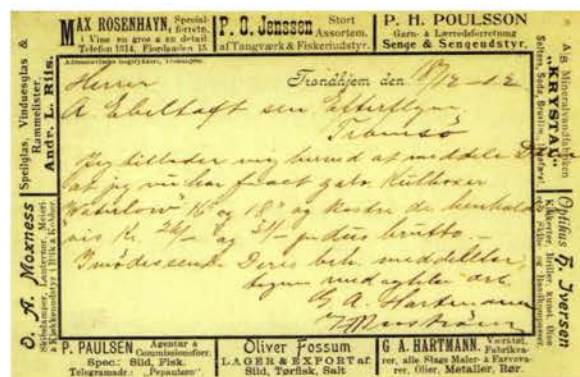 MAX ROSENHAYN, Special-
forretn.
i Vine en gros & en detail
Telefon 1314. Fjordgaden 15.
P. O. Jenssen Stort
Assortem.
af Tangværk & Fiskeriudstyr.
P. H. POULSSON
Garn- & Lærredsforretning
Senge & Sengeudstyr.
Speilglas, Vinduesglas &
Rammelister,
Andr. L. Riis.
O. A. Moxness
A/S Mineralvandfabriken
"KRYSTAL"
Optikus H. Iversen
Trondhjem den 18/12-02
Herrer
A Ebeltoft sen Efterflgr.
Tromsø
Jeg tillader mig herved at meddele Dem
at jeg nu har faaet galv. Kulboxer
Waterlow 16" og 18" og koster de henholds
vis Kr. 26/- og 31/- pr dus brutto.
Imødesseende Deres beh. meddelelse
tegner med agtelse
G A. Hartmann
P. PAULSEN Agentur &
Commissionsforr.
Spec.: Sild, Fisk.
Telegramadr.: "Pepaulsen"
Oliver Fossum
LAGER & EXPORT af
Sild, Tørfisk, Salt
G A. HARTMANN. Værktøi,
Fabrikva-
rer, alle Slags Maler- & Farveva-
rer, Olier, Metaller, Rør.